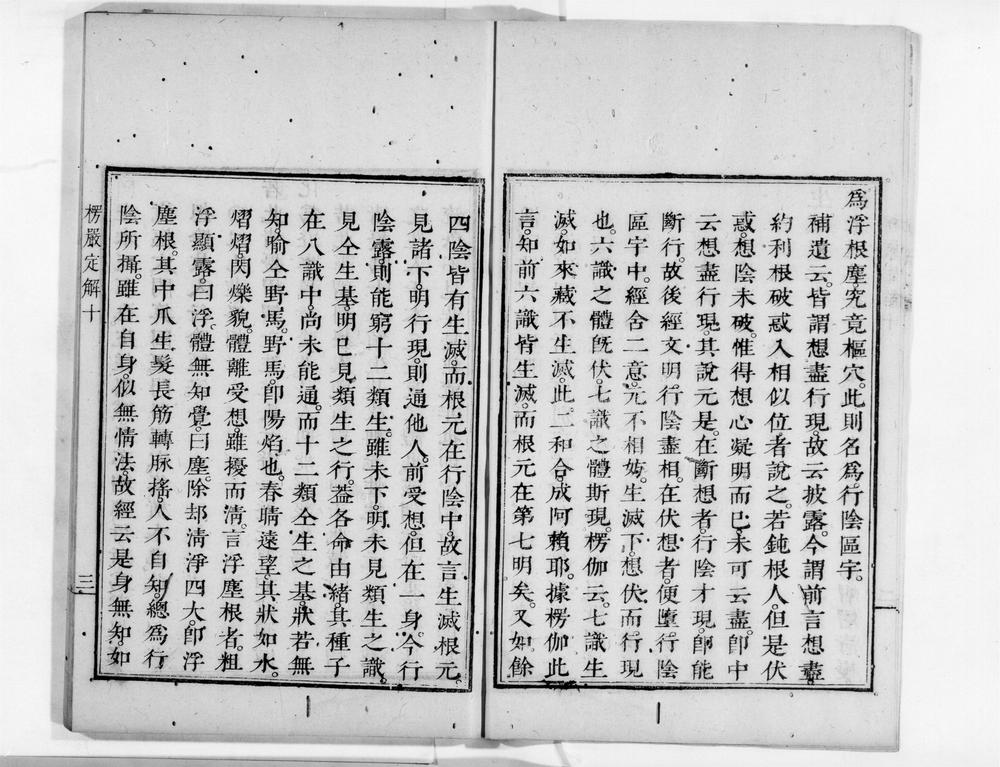 為浮根塵究竟樞穴。此則名為行陰區宇。
補遺云。皆謂想盡行現。故云披露。今謂前言想盡
約利根破惑入相似位者說之。若鈍根人。但是伏
惑。想陰未破。惟得想心凝明而已。未可云盡。即中
云想盡行現。其說元是。在斷想者。行陰才現。即能
斷行。故後經文明。行陰盡相。在伏想者。便墮。行陰
區宇中。經含二意。元不相妨。生滅下。想伏而行現
也。六識之體既伏。七識之體斯現。楞伽云。七識生
滅。如來藏不生滅。此二和合。成阿賴耶。據楞伽此
言。知前六識皆生滅。而根元在第七明矣。又如餘
四陰皆有生滅。而根元在行陰中。故言生滅根元。
見諸下。明行現。則通他人。前受想。但在一身。今行
陰露。則能窮十二類生。雖未下。明未見類生之識。
見仝生基。明已見類生之行。葢各命由緒。其種子
在八識中。尚未能通。而十二類仝生之基。狀若無
知。喻仝野馬。野馬。即陽焰也。春晴遠望。其狀如水。
熠熠。閃爍貌。體離受想。雖擾而清。言浮塵根者。粗
浮顯露。曰浮。體無知覺。曰塵。除却清淨四大。即浮
塵根。其中爪生髮長筋轉脉搖。人不自知。總為行
陰所攝。雖在自身。似無情法。故經云是身無知。如
楞嚴定解十
三